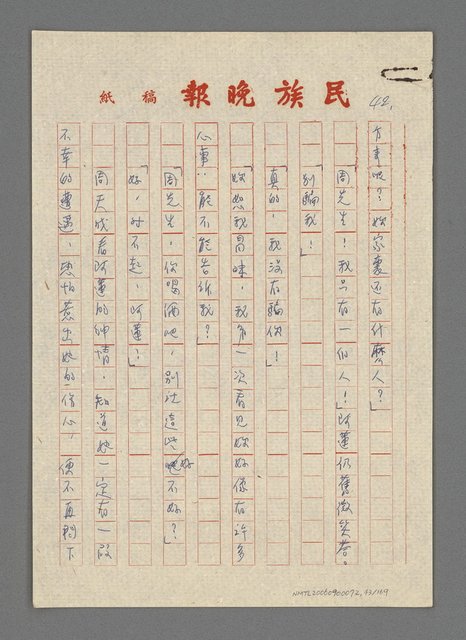 民族晚報 稿紙
42.
方車呢？妳家裏还有什麼人？」
「周先生！我只有一個人！」阿蓮仍舊微笑着。
「別騙我！」
「真的，我沒有騙你！」
「妳恕我冒昧，我有一次看見妳好像有許多
心事：能不能告訴我？」
「周先生，你喝酒吧，別沈這些好不好？」
「好，对不起，阿蓮！」
周天成看阿蓮的神情，知道她一定有一段
不幸的遭遇，恐怕惹出她的傷心，便不再問下
NMTL20060900072, 43/169